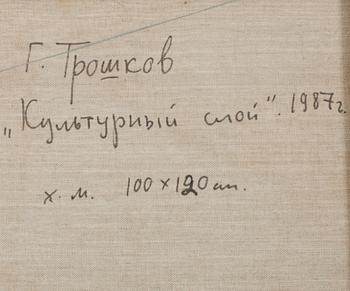 Г. Трошков
„Культурный слой". 1987г.
х. м. 100 х 120 см.